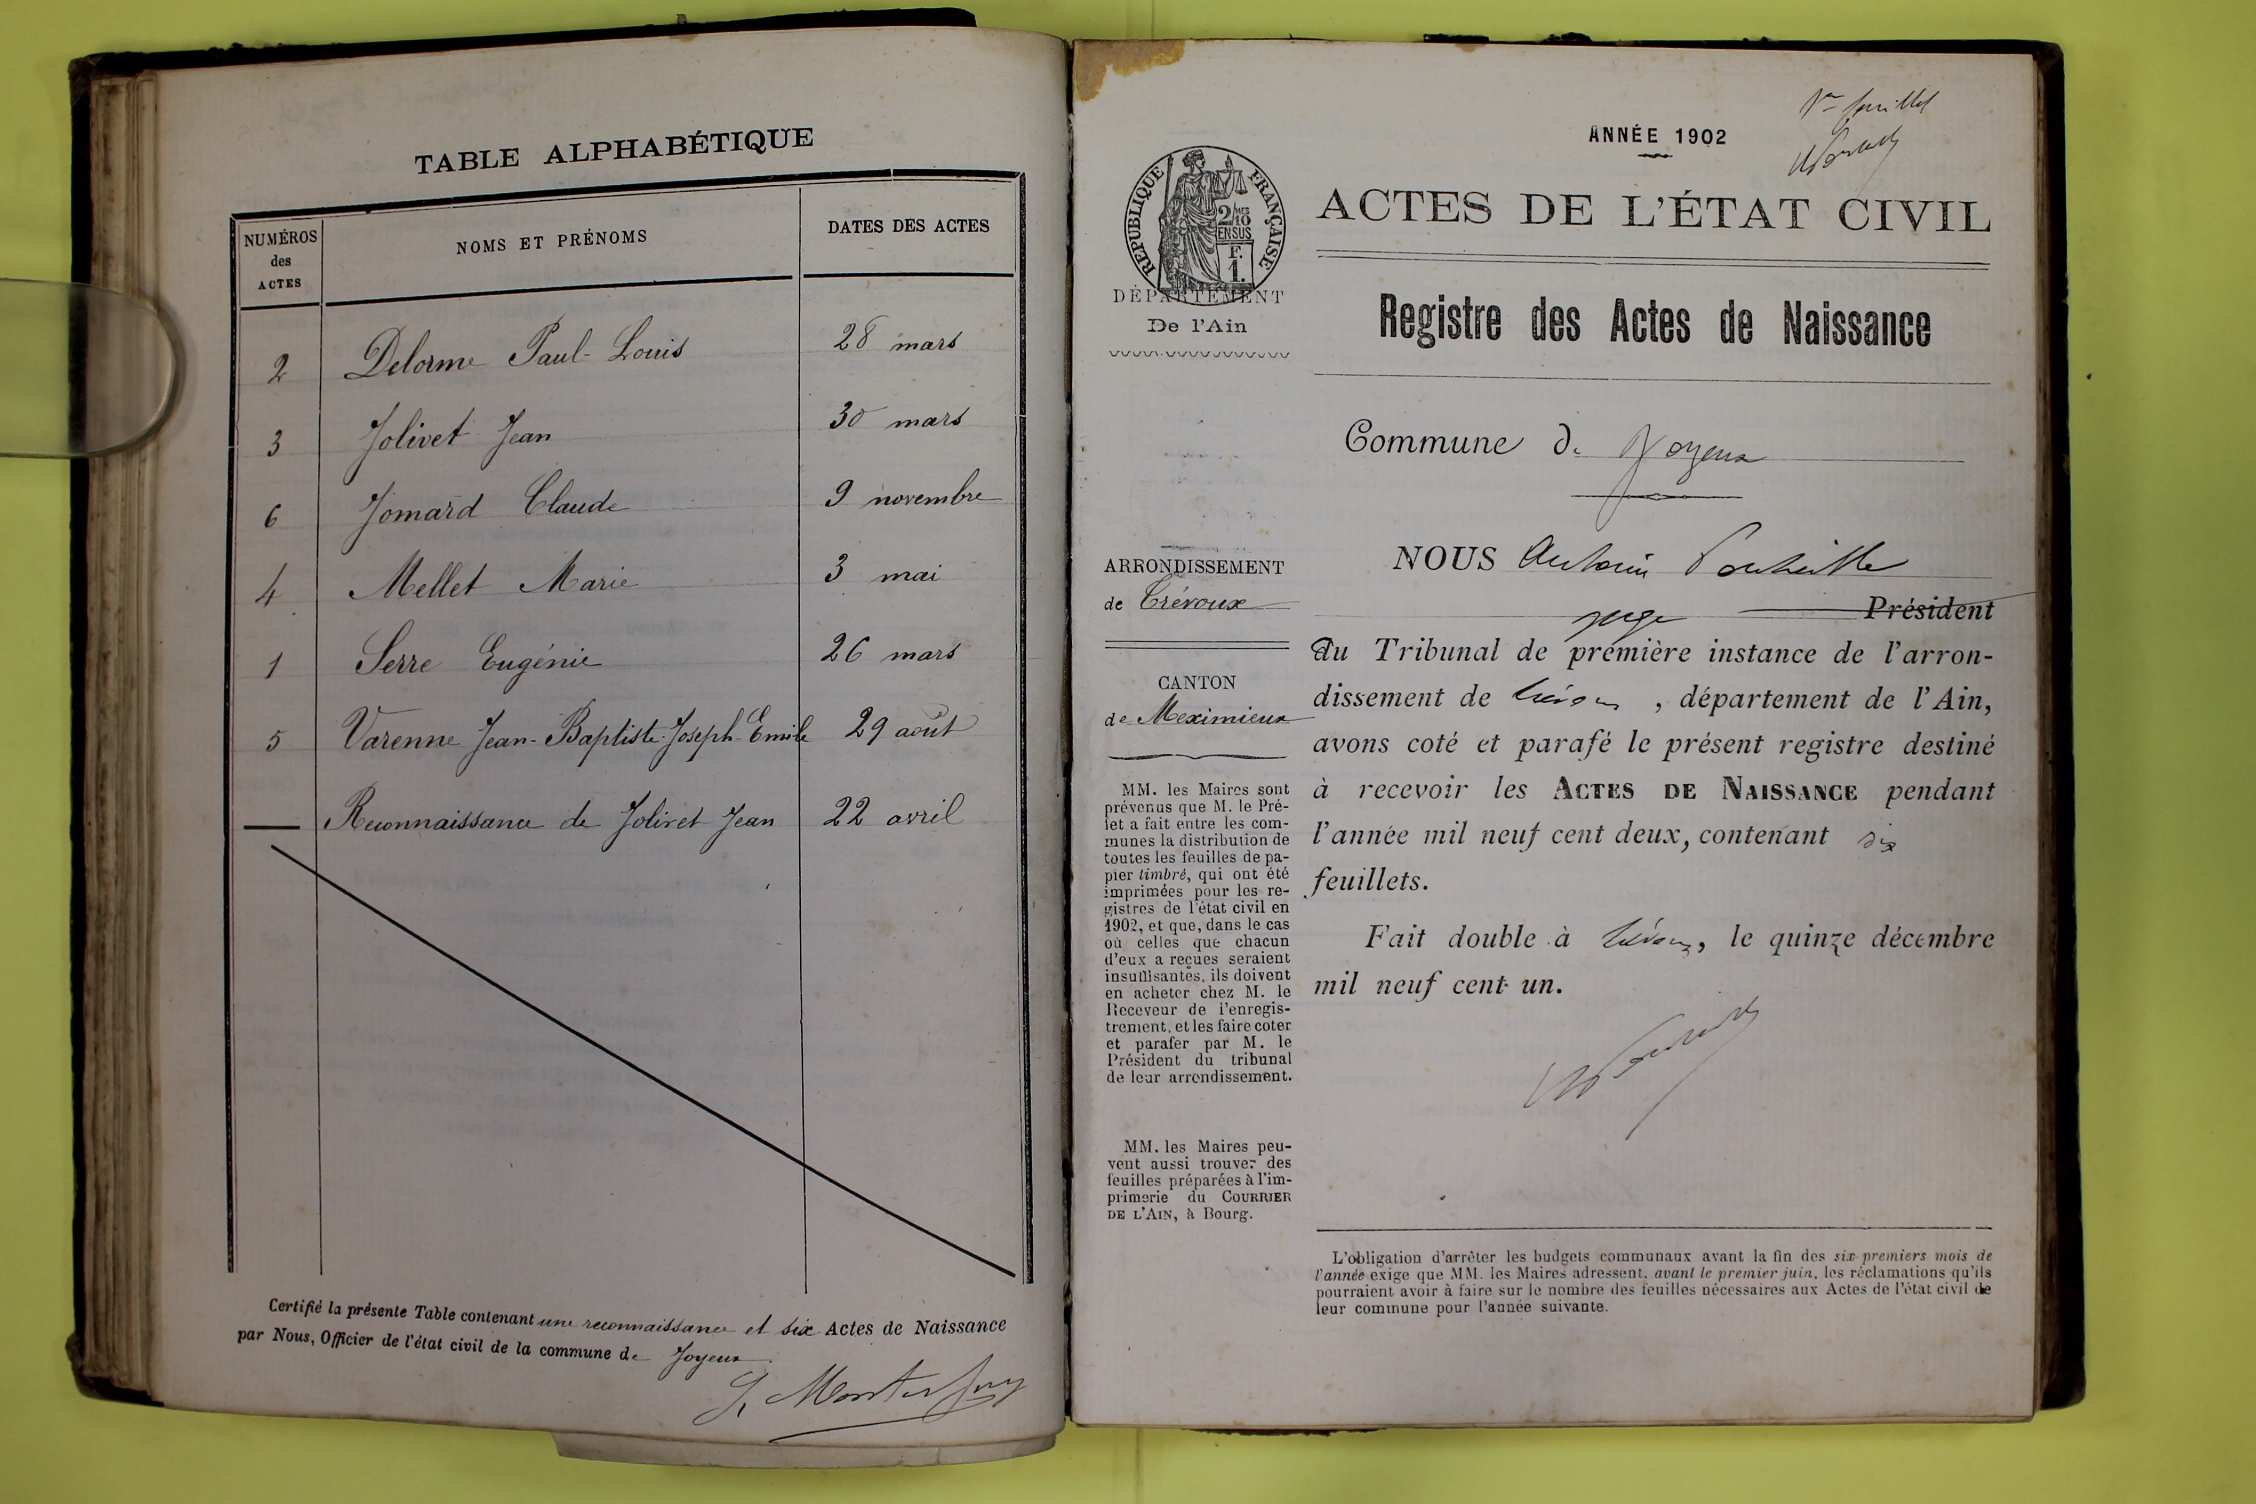 TABLE ALPHABÉTIQUE
NUMÉROS des ACTES NOMS ET PRÉNOMS DATES DES ACTES
2 Delorme Paul-Louis 28 mars
3 Jolivet Jean 30 mars
6 Jomard Claude 9 novembre
4 Mellet Marie 3 mai
1 Serre Eugénie 26 mars
5 Varenne Jean-Baptiste-Joseph-Emile 29 août
Reconnaissance de Jolivet Jean 22 avril
Certifié la présente Table contenant une reconnaissance et six Actes de Naissance
par Nous, Officier de l'état civil de la commune de Joyeux
ANNÉE 1902
RÉPUBLIQUE FRANÇAISE
2/10 MES
EN SUS
F.
1.
DÉPARTEMENT
De l'Ain
ARRONDISSEMENT
de Trévoux
CANTON
de Meximieux
MM. les Maires sont
prévenus que M. le Pré-
fet a fait entre les com-
munes la distribution de
toutes les feuilles de pa-
pier timbré, qui ont été
imprimées pour les re-
gistres de l'état civil en
1902, et que, dans le cas
où celles que chacun
d'eux a reçues seraient
insuffisantes, ils doivent
en acheter chez M. le
Receveur de l'enregis-
trement, et les faire coter
et parafer par M. le
Président du tribunal
de leur arrondissement.
MM. les Maires peu-
vent aussi trouver des
feuilles préparées à l'im-
primerie du COURRIER
DE L'AIN, à Bourg.
1er feuillet
ACTES DE L'ÉTAT CIVIL
Registre des Actes de Naissance
Commune de Joyeux
NOUS Antonin
juge Président
au Tribunal de première instance de l'arron-
dissement de Trévoux, département de l'Ain,
avons coté et parafé le présent registre destiné
à recevoir les ACTES DE NAISSANCE pendant
l'année mil neuf cent deux, contenant six
feuillets.
Fait double à Trévoux, le quinze décembre
mil neuf cent un.
L'obligation d'arrêter les budgets communaux avant la fin des six premiers mois de
l'année exige que MM. les Maires adressent, avant le premier juin, les réclamations qu'ils
pourraient avoir à faire sur le nombre des feuilles nécessaires aux Actes de l'état civil de
leur commune pour l'année suivante.